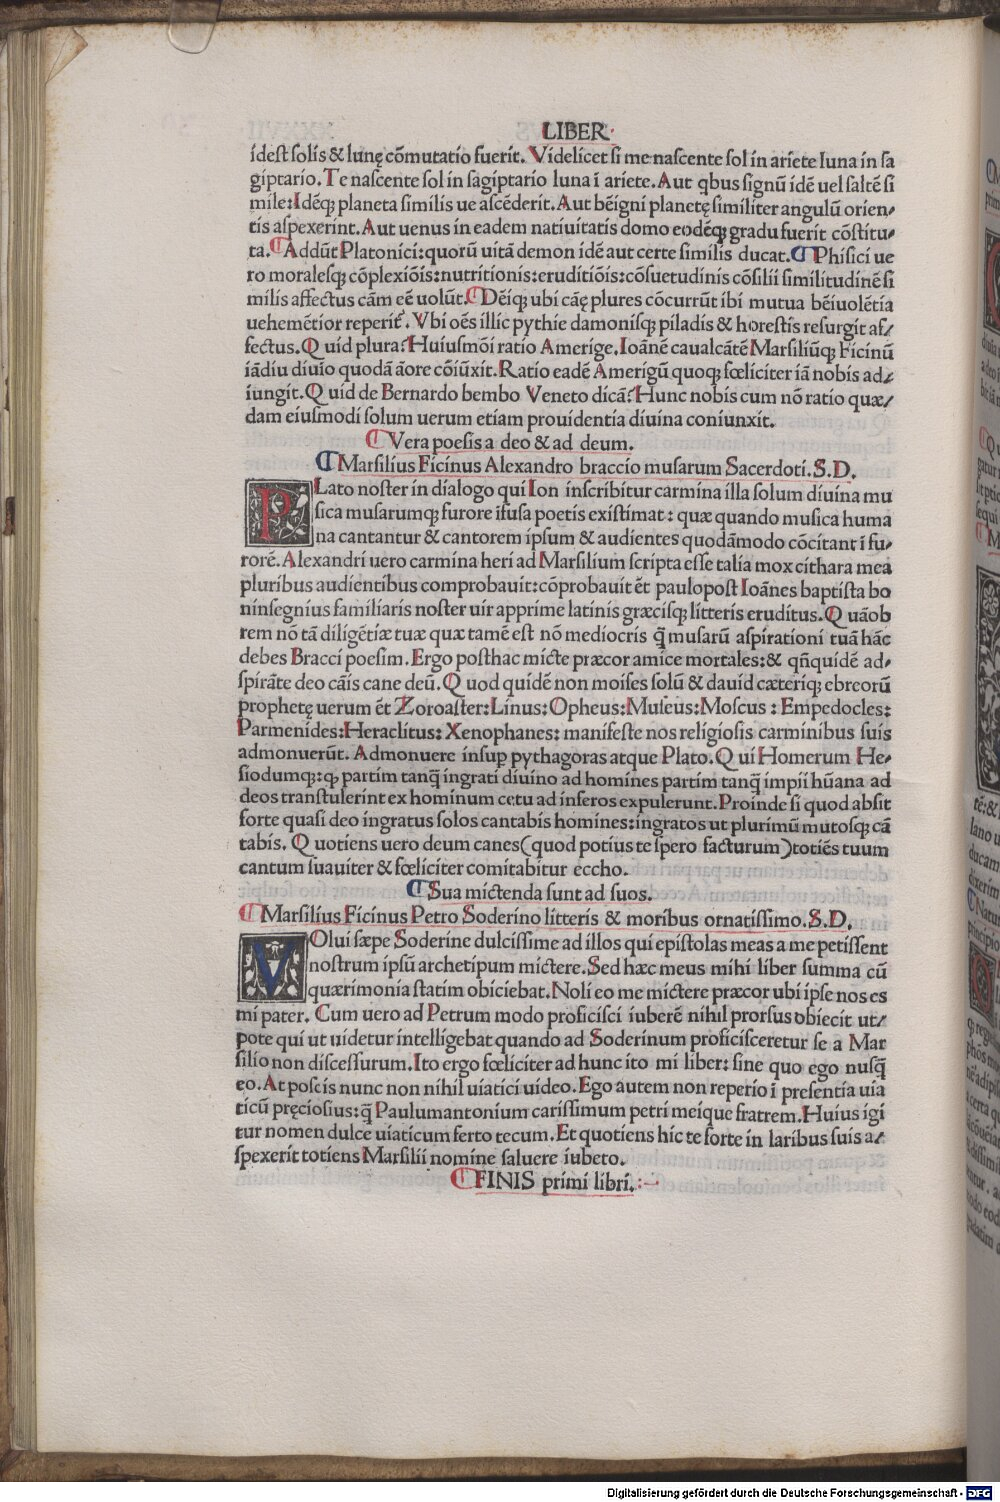 LIBER
idest solis & lunę cōmutatio fuerit. Videlicet si me nascente sol in ariete luna in sa
giptario. Te nascente sol in sagiptario luna ī ariete. Aut qbus signū idē uel saltē si
mile: Idēq; planeta similis ue ascēderit. Aut bēigni planetę similiter angulū orien-
tis aspexerint. Aut uenus in eadem natiuitatis domo eodēq; gradu fuerit cōstitu-
ta. ¶ Addūt Platonici: quorū uitā demon idē aut certe similis ducat. ¶ Phisici ue
ro moralesq; cōplexiōis: nutritionis: eruditiōis: cōsuetudinis cōsilii similitudinē si
milis affectus cām eē uolūt. ¶ Dēiq; ubi cāę plures cōcurrūt ibi mutua bēiuolētia
uehemētior reperit̄. Vbi oēs illic pythie damonisq; piladis & horestis resurgit af-
fectus. Quid plura? Huiusmōi ratio Amerige. Ioānē caualcātē Marsiliūq; Ficinū
iādiu diuīo quodā āore cōiūxit. Ratio eadē Amerigū quoq; fœliciter iā nobis ad-
iungit. Quid de Bernardo bembo Veneto dicā? Hunc nobis cum nō ratio quæ-
dam eiusmodi solum uerum etiam prouidentia diuina coniunxit.
¶ Vera poesis a deo & ad deum.
¶ Marsilius Ficinus Alexandro braccio musarum Sacerdoti. S. D.
PLato noster in dialogo qui Ion inscribitur carmina illa solum diuina mu
sica musarumq; furore īfusa poetis existimat: quæ quando musica huma
na cantantur & cantorem ipsum & audientes quodāmodo cōcitant ī fu-
rorē. Alexandri uero carmina heri ad Marsilium scripta esse talia mox cithara mea
pluribus audientibus comprobauit: cōprobauit ēt paulopost Ioānes baptista bo
ninsegnius familiaris noster uir apprime latinis græcisq; litteris eruditus. Quāob
rem nō tā diligētiæ tuæ quæ tamē est nō mediocris q̄ musarū aspirationi tuā hāc
debes Bracci poesim. Ergo posthac micte præcor amice mortales: & qn̄quidē ad-
spirāte deo cāis cane deū. Quod quidē non moises solū & dauid cæteriq; ebreorū
prophetę uerum ēt Zoroaster: Linus: Opheus: Museus: Moscus: Empedocles:
Parmenides: Heraclitus: Xenophanes: manifeste nos religiosis carminibus suis
admonuerūt. Admonuere insup pythagoras atque Plato. Qui Homerum He-
siodumq;: q; partim tanq̄ ingrati diuino ad homines partim tanq̄ impii hūana ad
deos transtulerint ex hominum cętu ad inferos expulerunt. Proinde si quod absit
forte quasi deo ingratus solos cantabis homines: ingratos ut plurimū mutosq; cā
tabis. Quotiens uero deum canes (quod potius te spero facturum) totiēs tuum
cantum suauiter & fœliciter comitabitur eccho.
¶ Sua mictenda sunt ad suos.
¶ Marsilius Ficinus Petro Soderino litteris & moribus ornatissimo. S. D.
VOlui sæpe Soderine dulcissime ad illos qui epistolas meas a me petissent
nostrum ipsū archetipum mictere. Sed hæc meus mihi liber summa cū
quærimonia statim obiciebat. Noli eo me mictere præcor ubi ipse nos es
mi pater. Cum uero ad Petrum modo proficisci iuberē nihil prorsus obiecit ut-
pote qui ut uidetur intelligebat quando ad Soderinum proficisceretur se a Mar
silio non discessurum. Ito ergo fœliciter ad hunc ito mi liber: sine quo ego nusq̄
eo. At poscis nunc non nihil uiatici uideo. Ego autem non reperio ī presentia uia
ticū pręciosius: q̄ Paulumantonium carissimum petri meique fratrem. Huius igi
tur nomen dulce uiaticum ferto tecum. Et quotiens hic te forte in laribus suis a-
spexerit totiens Marsilii nomine saluere iubeto.
¶ FINIS primi libri. :-
Digitalisierung gefördert durch die Deutsche Forschungsgemeinschaft - DFG